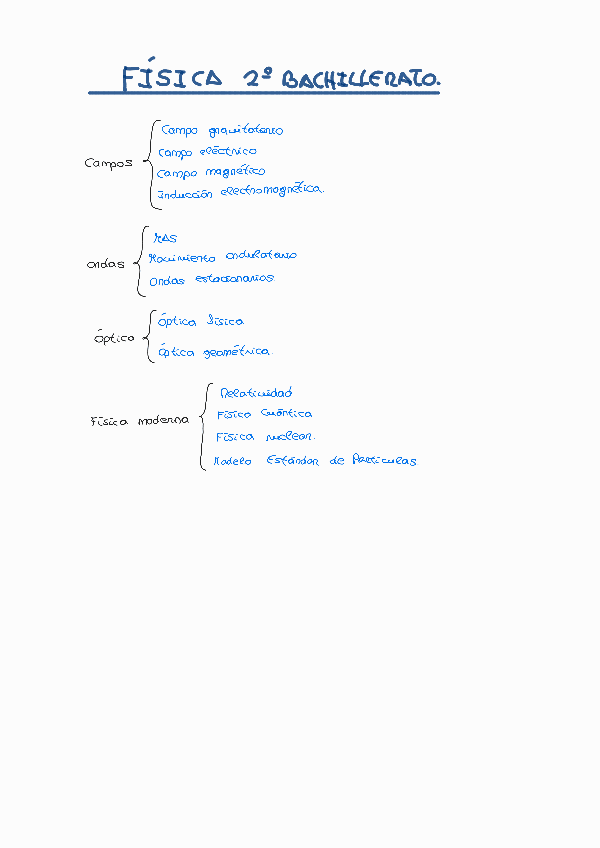 FÍSICA 2º BACHILLERATO.
Campo gravitatorio
Campo eléctrico
Campos
Campo magnético
Inducción electromagnética.
MAS
Movimiento ondulatorio
Ondas
Ondas estacionarias
Óptica física
Óptica
Óptica geométrica.
Relatividad
Física Cuántica
Física moderna
Física nuclear.
Modelo Estándar de Partículas